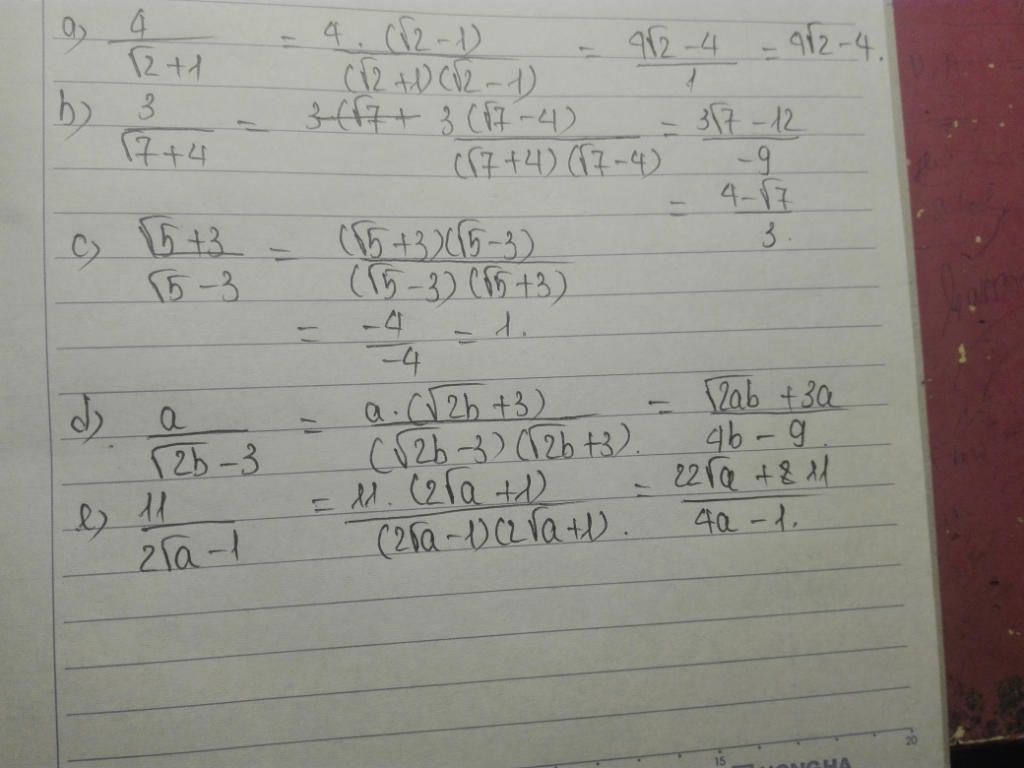 a) 4/(√2+1) = 4.(√2-1)/((√2+1)(√2-1)) = (4√2-4)/1 = 4√2-4.
b) 3/(√7+4) = 3(√7+ 3(√7-4)/((√7+4)(√7-4)) = (3√7-12)/-9
= (4-√7)/3.
c) (√5+3)/(√5-3) = (√5+3)(√5-3)/((√5-3)(√5+3))
= -4/-4 = 1.
d) a/(√2b-3) = a.(√2b+3)/((√2b-3)(√2b+3)). = (√2ab+3a)/(4b-9).
e) 11/(2√a-1) = 11.(2√a+1)/((2√a-1)(2√a+1)). = (22√a+11)/(4a-1).
15 20
HONGHA